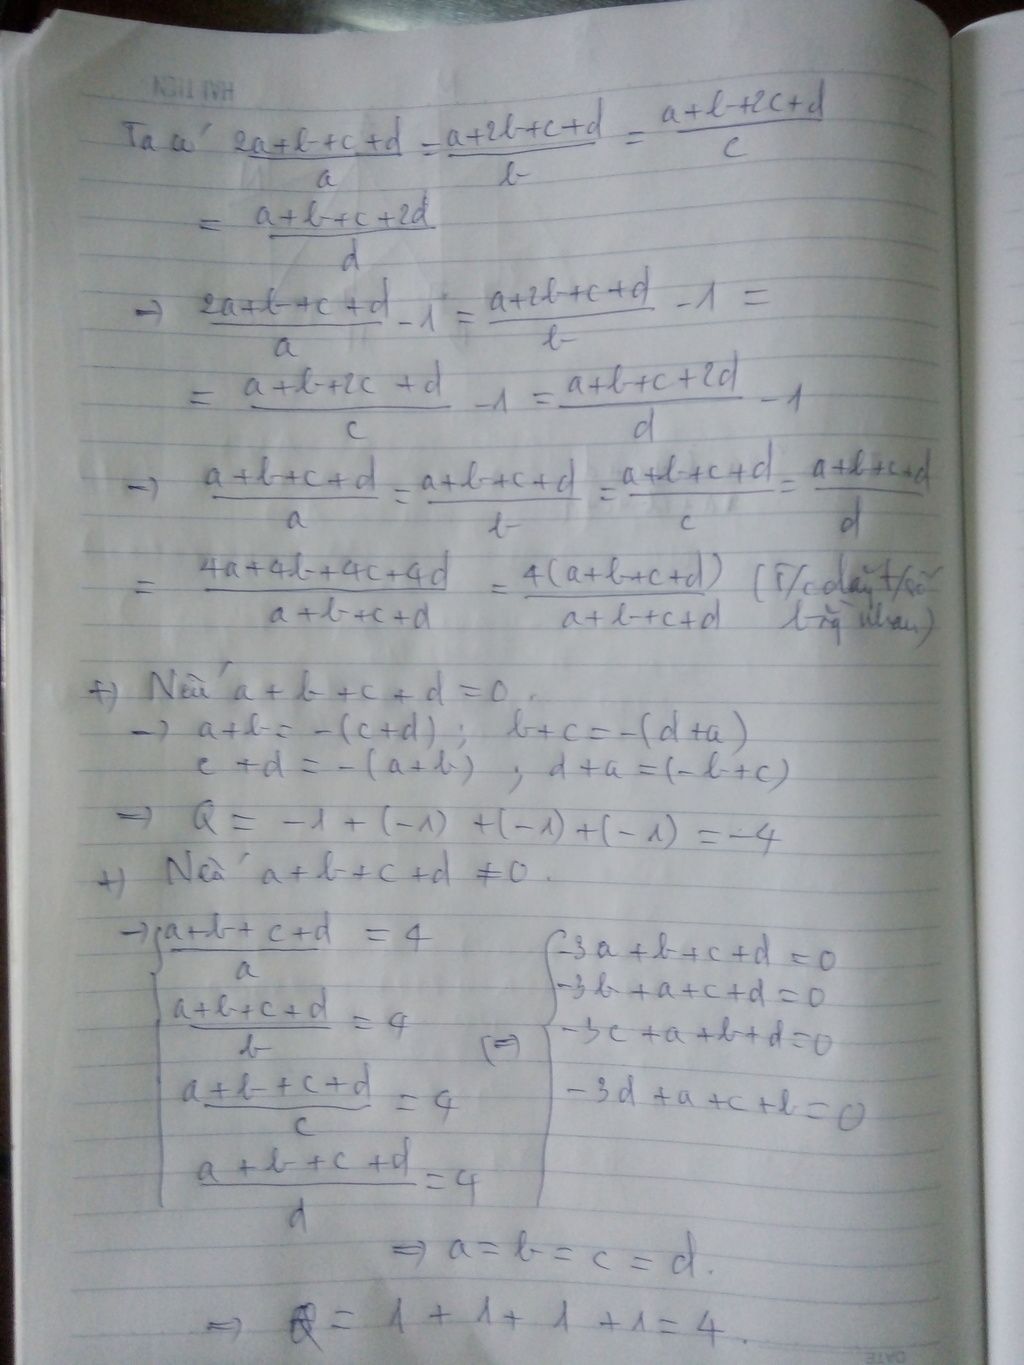 HẢI TIẾN
Ta có 2a+b+c+d/a = a+2b+c+d/b = a+b+2c+d/c
= a+b+c+2d/d
→ 2a+b+c+d/a - 1 = a+2b+c+d/b - 1 =
= a+b+2c+d/c - 1 = a+b+c+2d/d - 1
→ a+b+c+d/a = a+b+c+d/b = a+b+c+d/c = a+b+c+d/d
= 4a+4b+4c+4d/a+b+c+d = 4(a+b+c+d)/a+b+c+d (T/c dãy t/số
bằng nhau)
+) Nếu a+b+c+d=0.
→ a+b=-(c+d); b+c=-(d+a)
c+d=-(a+b), d+a=(-b+c)
=> Q = -1+(-1)+(-1)+(-1)=-4
+) Nếu a+b+c+d≠0.
→ a+b+c+d/a = 4
a+b+c+d/b = 4
a+b+c+d/c = 4
a+b+c+d/d = 4
(=> -3a+b+c+d=0
-3b+a+c+d=0
-3c+a+b+d=0
-3d+a+c+b=0
=> a=b=c=d.
=> Q = 1+1+1+1=4.
DATE